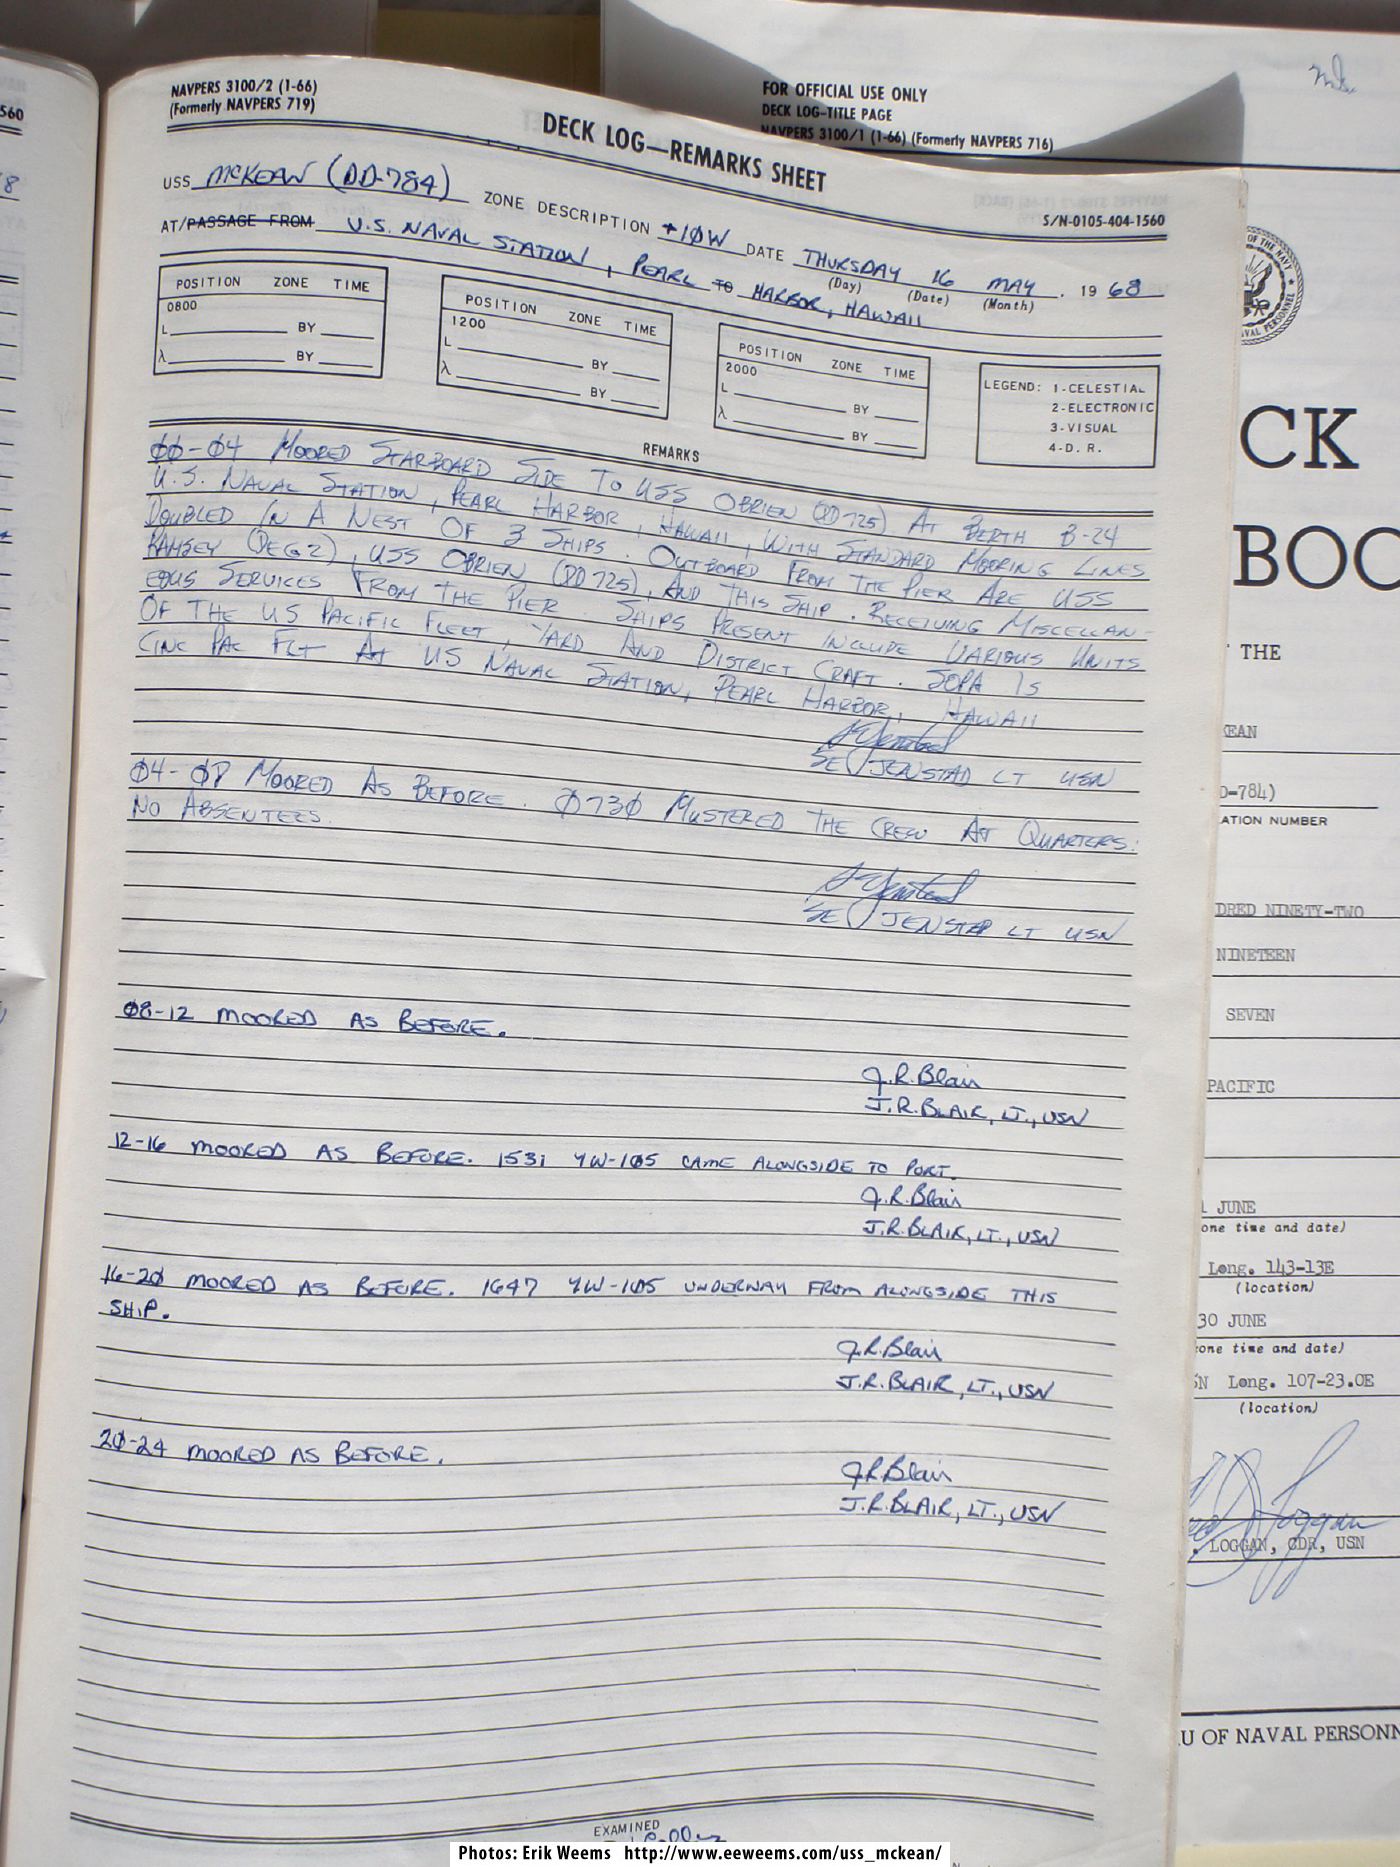 560
8
NAVPERS 3100/2 (1-66)
(Formerly NAVPERS 719)
DECK LOG—REMARKS SHEET
S/N-0105-404-1560
USS McKEAN (DD-784) ZONE DESCRIPTION +10W DATE THURSDAY 16 MAY . 19 68
(Day) (Date) (Month)
AT/PASSAGE FROM U.S. NAVAL STATION, PEARL TO HARBOR, HAWAII
POSITION ZONE TIME
0800
L BY
λ BY
POSITION ZONE TIME
1200
L BY
λ BY
POSITION ZONE TIME
2000
L BY
λ BY
LEGEND: 1-CELESTIAL
2-ELECTRONIC
3-VISUAL
4-D. R.
REMARKS
00-04 MOORED STARBOARD SIDE TO USS OBRIEN (DD725) AT BERTH B-24
U.S. NAVAL STATION, PEARL HARBOR, HAWAII, WITH STANDARD MOORING LINES
DOUBLED IN A NEST OF 3 SHIPS. OUTBOARD FROM THE PIER ARE USS
RAMSEY (DEG2), USS OBRIEN (DD725), AND THIS SHIP. RECEIVING MISCELLAN-
EOUS SERVICES FROM THE PIER. SHIPS PRESENT INCLUDE VARIOUS UNITS
OF THE US PACIFIC FLEET, YARD AND DISTRICT CRAFT. SOPA IS
CINC PAC FLT AT US NAVAL STATION, PEARL HARBOR, HAWAII
SE JENSTAD LT USN
04-08 MOORED AS BEFORE. 0730 MUSTERED THE CREW AT QUARTERS:
NO ABSENTEES.
SE JENSTAD LT USN
08-12 MOORED AS BEFORE.
J.R. Blair
J.R. BLAIR, LT., USN
12-16 MOORED AS BEFORE. 1531 YW-105 CAME ALONGSIDE TO PORT.
J.R. Blair
J.R. BLAIR, LT., USN
16-20 MOORED AS BEFORE. 1647 YW-105 UNDERWAY FROM ALONGSIDE THIS
SHIP.
J.R. Blair
J.R. BLAIR, LT., USN
20-24 MOORED AS BEFORE.
J.R. Blair
J.R. BLAIR, LT., USN
EXAMINED
FOR OFFICIAL USE ONLY
DECK LOG-TITLE PAGE
NAVPERS 3100/1 (1-66) (Formerly NAVPERS 716)
CK
BOO
THE
KEAN
D-784)
ATION NUMBER
DRED NINETY-TWO
NINETEEN
SEVEN
PACIFIC
1 JUNE
one time and date)
Long. 143-13E
(location)
30 JUNE
one time and date)
N Long. 107-23.0E
(location)
LOGGAN, CDR, USN
U OF NAVAL PERSONN
Photos: Erik Weems http://www.eeweems.com/uss_mckean/